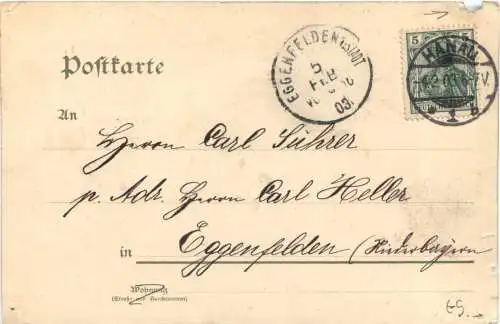 EGGENFELDEN STADT
5
FEB
03.
5
HANAU
Postkarte
An
Herrn Carl Sührer
p. Adr. Herrn Carl Heller
in Eggenfelden (Niederbayern
Wohnung
(Straße und Hausnummer)